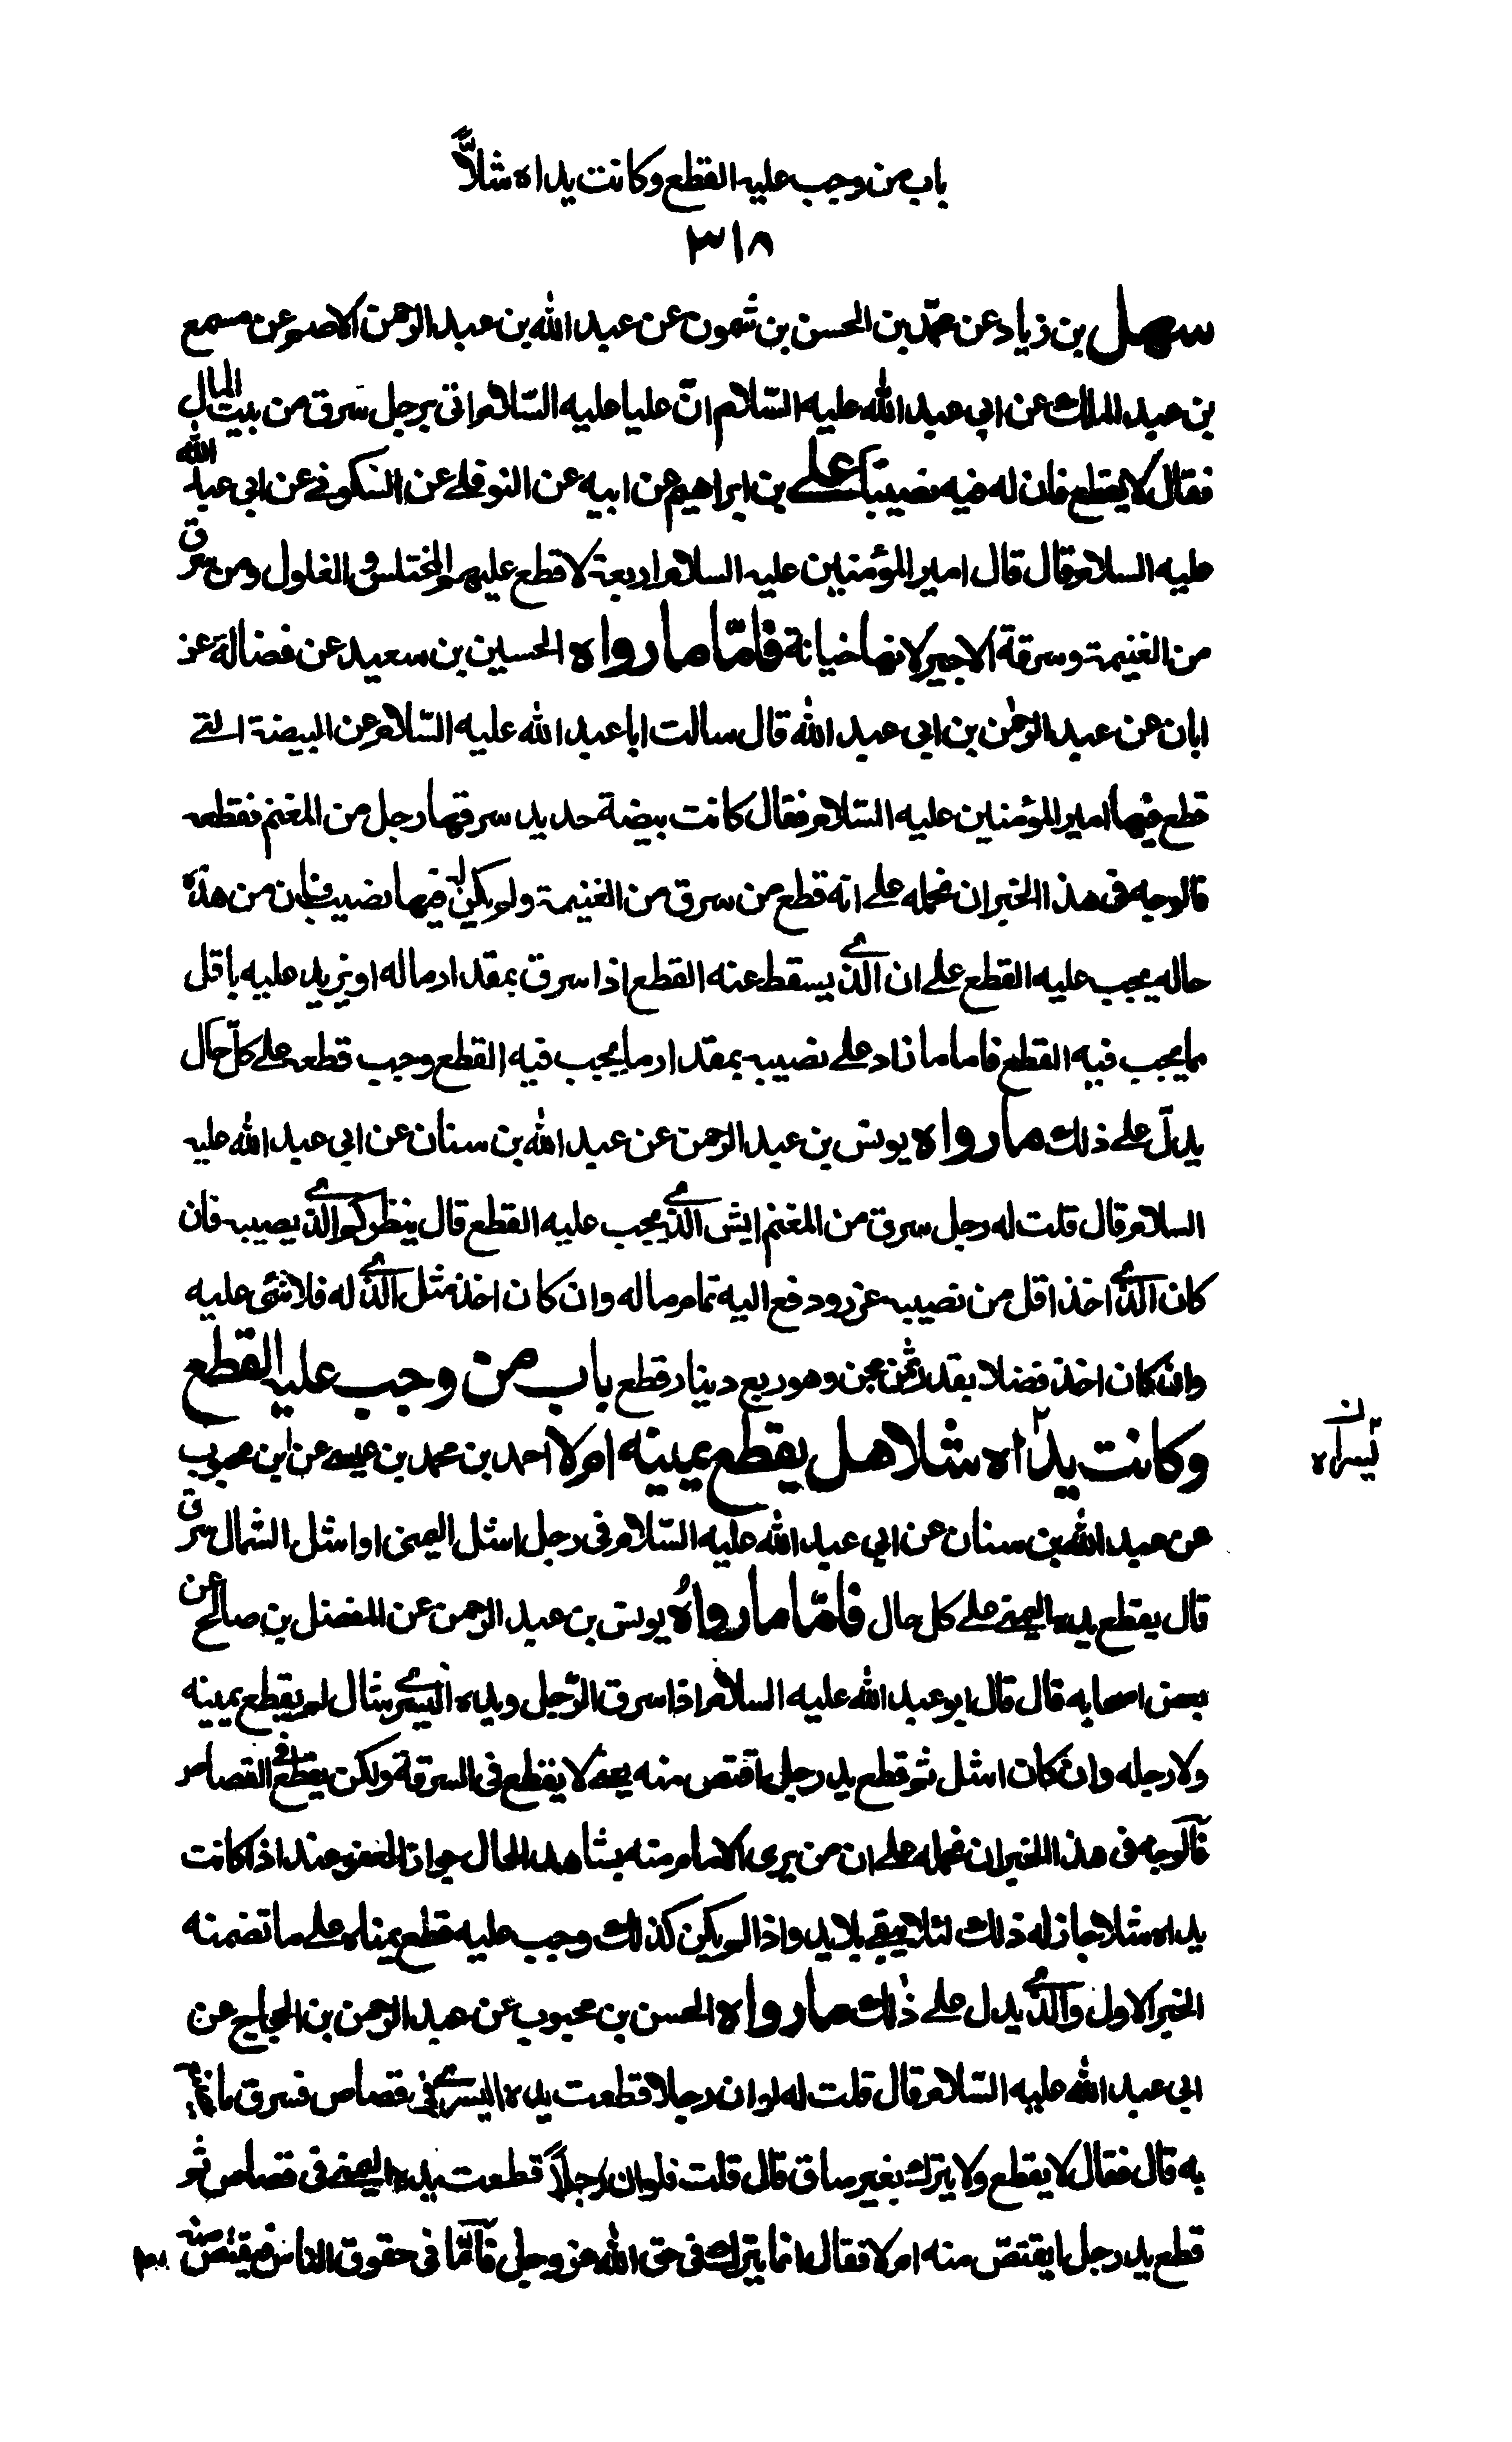 باب من وجب عليه القطع وكانت يداه شلاًّ
٣١٨
سهل بن زياد عن محمّد بن الحسن بن شمون عن عبد الله بن عبد الرحمن الاصم عن مسمع
بن عبد الملك عن ابي عبد الله عليه السّلام انّ عليا عليه السّلام اتى برجل سرق من بيت المال
فقال لا يقطع فان له فيه نصيبا علي بن ابراهيم عن ابيه عن النوفلي عن السكوني عن ابي عبد الله
عليه السلام قال قال امير المؤمنين عليه السلام اربعة لا قطع عليهم المختلس و الغلول ومن سرق
من الغنيمة وسرقة الاجير لانها خيانة فامّا ما رواه الحسين بن سعيد عن فضالة عن
ابان عن عبد الرحمن بن ابي عبد الله قال سالت ابا عبد الله عليه السّلام عن البيضة التي
قطع فيها امير المؤمنين عليه السّلام فقال كانت بيضة حديد سرقها رجل من المغنم فقطعه
فالوجه في هذا الخبر ان نحمله على انه قطع من سرق من الغنيمة ولم يكن له فيها نصيب فان من هذه
حاله يجب عليه القطع على ان الذي يسقط عنه القطع اذا سرق بمقدار ماله او يزيد عليه باقل
مما يجب فيه القطع فاما ما زاد على نصيبه بمقدار ما يجب فيه القطع وجب قطعه على كلّ حال
يدلّ على ذلك ما رواه يونس بن عبد الرحمن عن عبد الله بن سنان عن ابي عبد الله عليه
السلام قال قلت له رجل سرق من المغنم ايش الذي يجب عليه القطع قال ينظر كم الذي يصيبه فان
كان الذي اخذ اقل من نصيبه عزر ودفع اليه تمام ماله وان كان اخذ مثل الذي له فلا شئ عليه
وان كان اخذ فضلا بقدر ثمن مجن وهو ربع دينار قطع باب من وجب عليه القطع
وكانت يداه شلا هل يقطع يمينه ام لا احمد بن محمد بن عيسى عن ابن محبوب
ن يسراه
عن عبد الله بن سنان عن ابي عبد الله عليه السّلام في رجل اشل اليمنى او اشل الشمال سرق
قال يقطع يده اليمنى على كل حال فامّا ما رواه يونس بن عبد الرحمن عن المفضل بن صالح عن
بعض اصحابه قال قال ابو عبد الله عليه السلام اذا سرق الرّجل ويده اليسرى شلل لم يقطع يمينه
ولا رجله وان كان اشل ثم قطع يد رجل اقتص منه يعني لا يقطع في السرقة ولكن يقطع في القصاص
فالوجه في هذا الخبر ان نحمله على ان من يرى الامام منه بشاهد الحال جواز العفو عنه اذا كانت
يداه شلا جاز له ذلك لئلا يبقى بلا يد واذا لم يكن كذلك وجب عليه قطع يمناه على ما تضمنه
الخبر الاول والذي يدل على ذلك ما رواه الحسن بن محبوب عن عبد الرحمن بن الحجاج عن
ابي عبد الله عليه السّلام قال قلت له لو ان رجلا قطعت يده اليسرى في قصاص فسرق ما
به قال فقال لا يقطع ولا يترك بغير ساق قال قلت فلو ان رجلاً قطعت يده اليمنى في قصاص ثم
قطع يد رجل ايقتصّ منه ام لا فقال انما يترك في حق الله عز وجل فامّا في حقوق الناس فيقتص منه